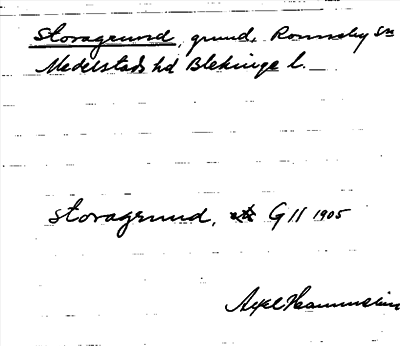 Storagrund, grund, Ronneby sn
Medelstads hd Blekinge l.
Storagrund, GII 1905
Axel